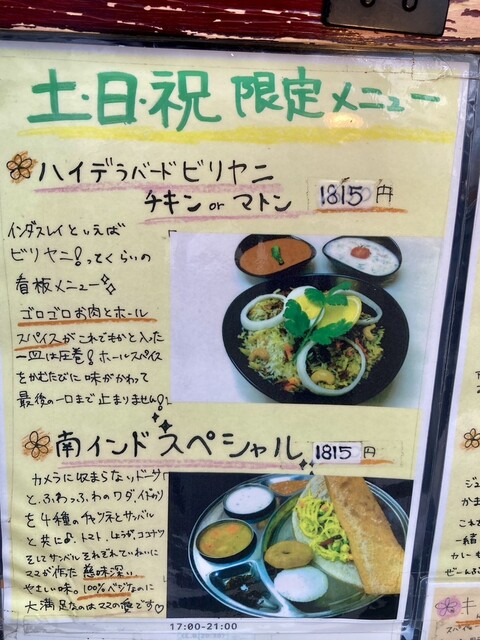 土・日・祝 限定メニュー
ハイデラバードビリヤニ
チキン or マトン 1815 円
インダスレイといえば
ビリヤニ!ってくらいの
看板メニュー
ゴロゴロお肉とホール
スパイスがこれでもかと入った
一皿は圧巻!ホールスパイス
をかむたびに味がかわって
最後の一口まで止まりません!
南インドスペシャル 1815 円
カメラに収まらないドーサ
と、ふわっふわのワダ、イドゥリ
を4種のチャツネとサンバル
と共に♪トマト、しょうが、ココナツ
そしてサンバルそれぞれていねいに
ママが作った 滋味深い
やさしい味。100%ベジなのに
大満足なのはママの愛です♡
17:00-21:00